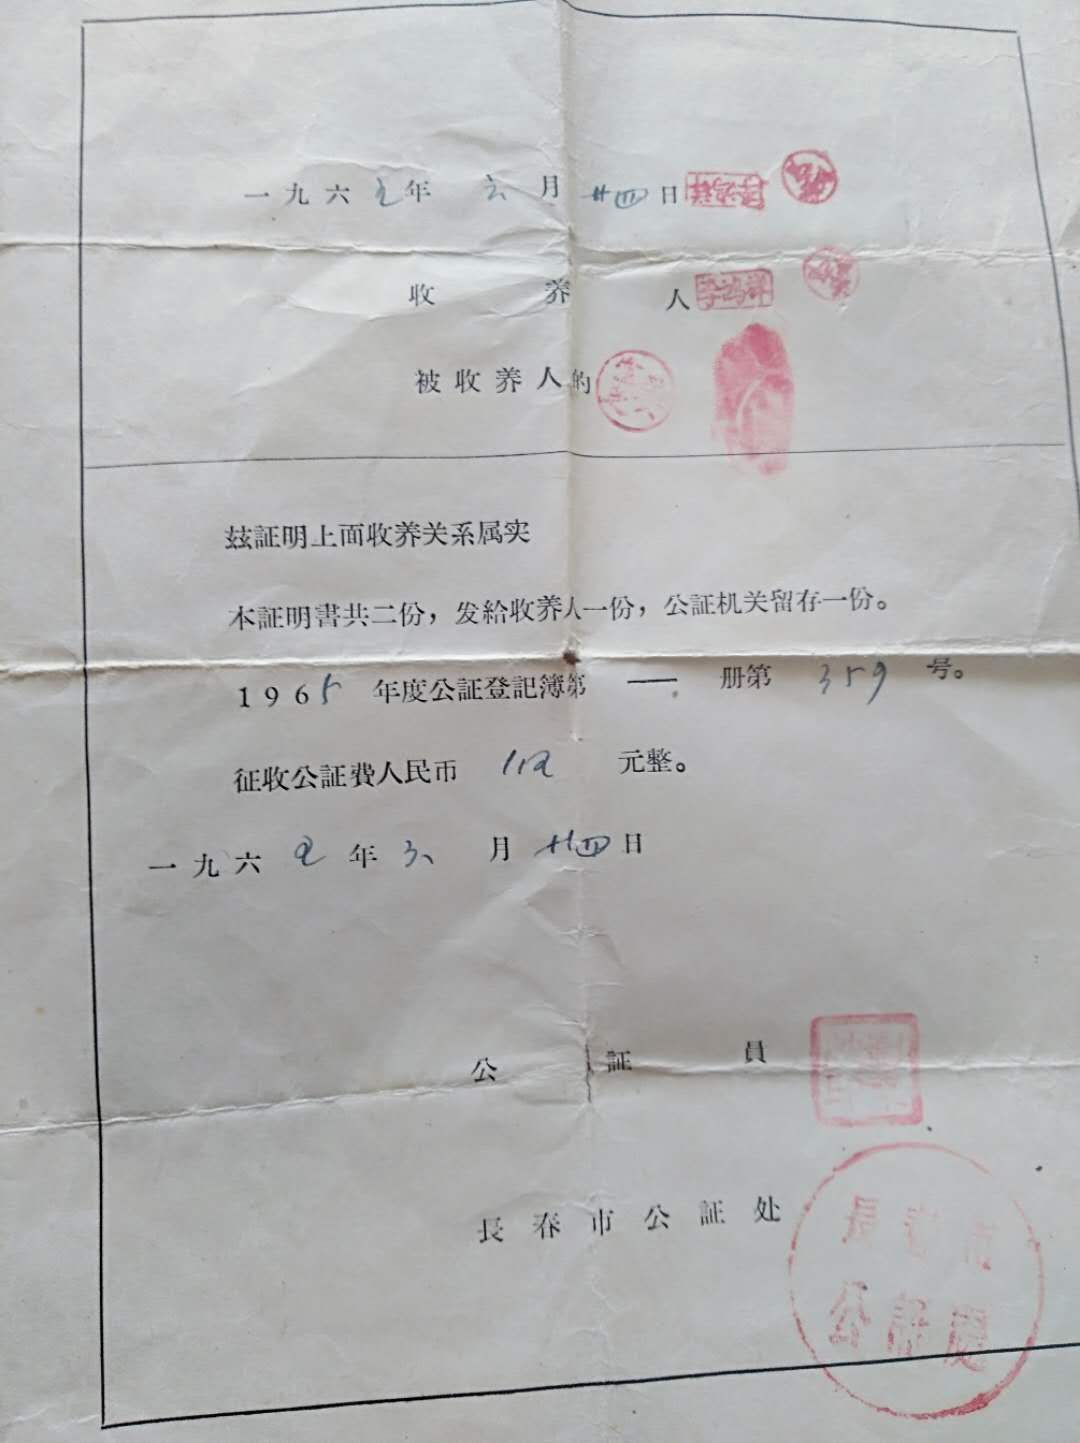 一九六五年 六月廿四日
收养人 李鸿祥
被收养人的
玆証明上面收养关系属实
本証明書共二份，发給收养人一份，公証机关留存一份。
1965年度公証登記簿第一册第359号。
征收公証費人民币 元整。
一九六五年六月廿四日
公証員
長春市公証处
長春市
公証處